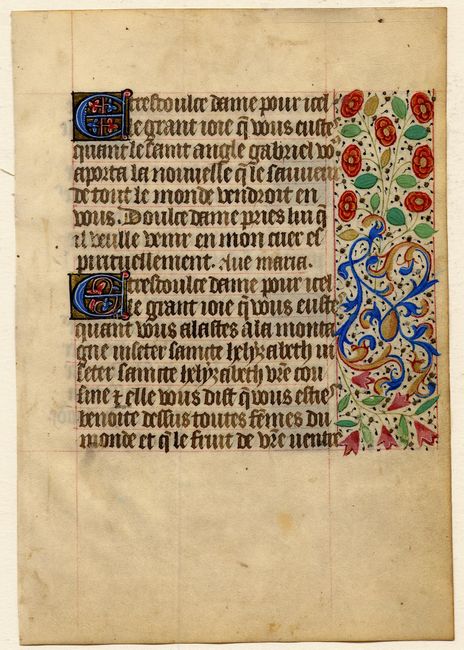 E trestoulce dame pour icel
le grant ioie q̄ vous euste
quant le saint angle gabriel vo⁹
aporta la nouuelle q̄ le sauueur
de tout le monde vendroit en
vous. Doulce dame pries luy q̄
il veulle venir en mon cuer es
pirituellement. Aue maria.
E trestoulce dame pour icel
le grant ioie q̄ vous euste
quant vous alastes a la monta
gne viseter saincte helyzabeth vi
seter saincte helyzabeth vr̄e cou
sine ⁊ elle vous dist q̄ vous esties
benoite dessus toutes fēmes du
monde et q̄ le fruit de vr̄e ventre